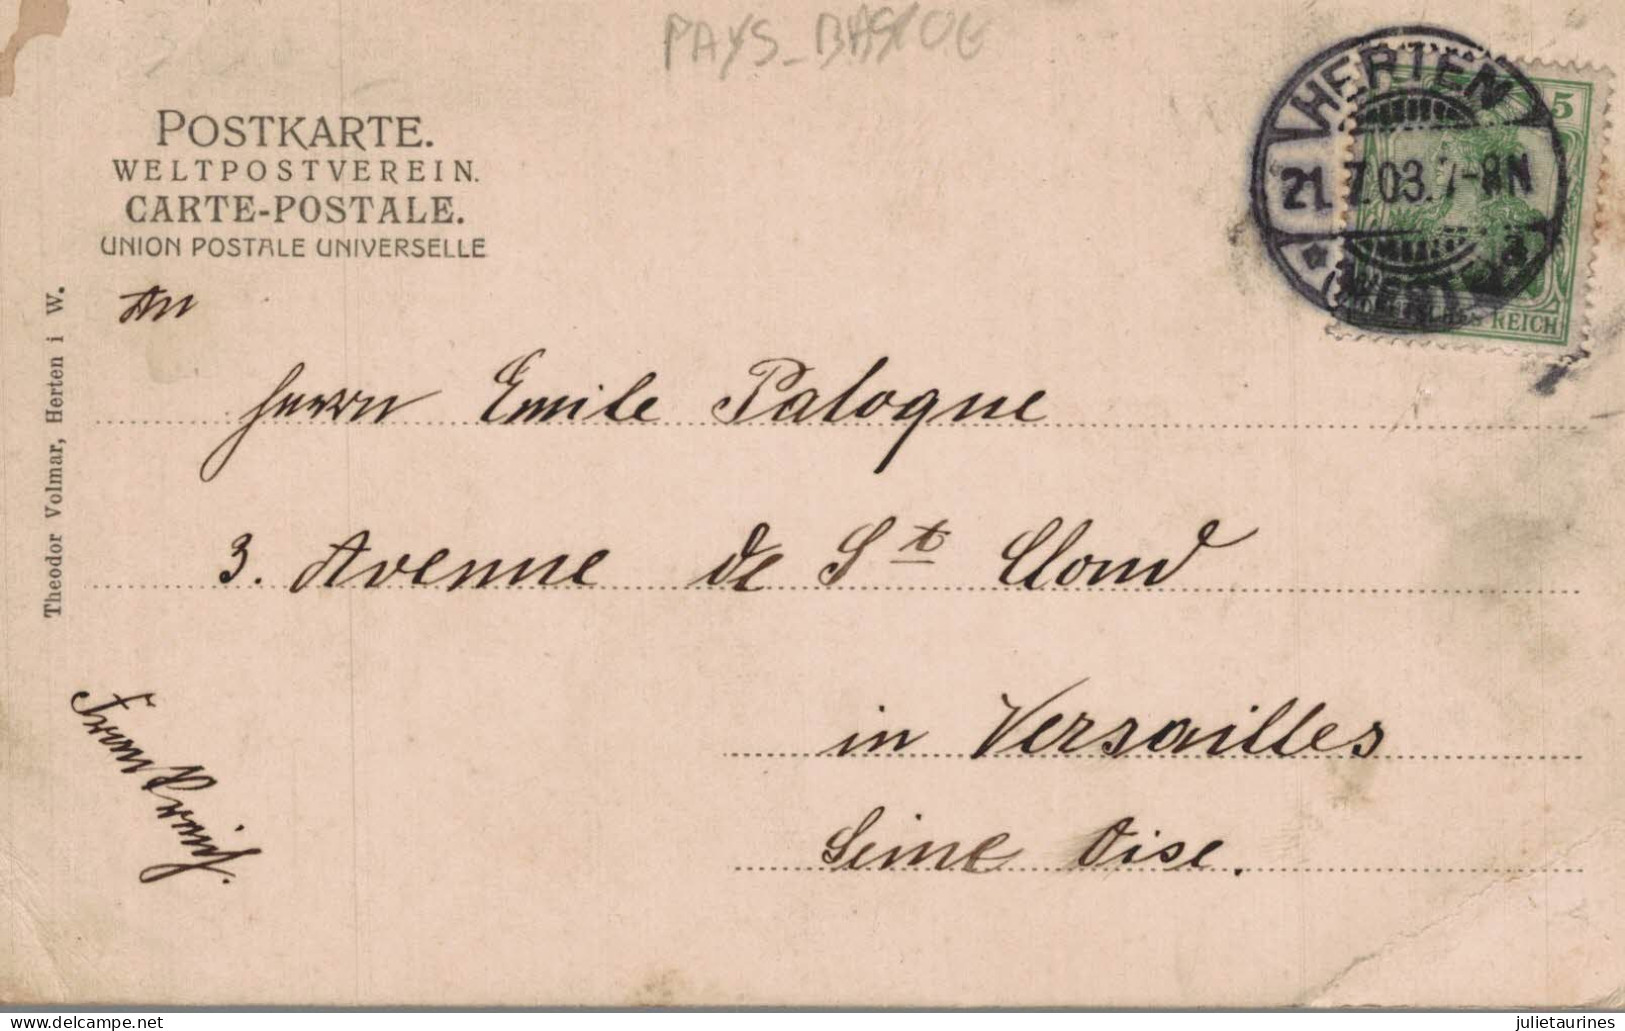 PAYS-BASQUE
POSTKARTE.
WELTPOSTVEREIN.
CARTE-POSTALE.
UNION POSTALE UNIVERSELLE
HERTEN
21. 7.03. 7-8N
(WESTF.)
5
REICH
Theodor Volmar, Herten i W.
An
Herrn Emile Palogne
3. Avenue de St Cloud
in Versailles
Seine Oise.
Frankreich.
delcampe.net
julietaurines